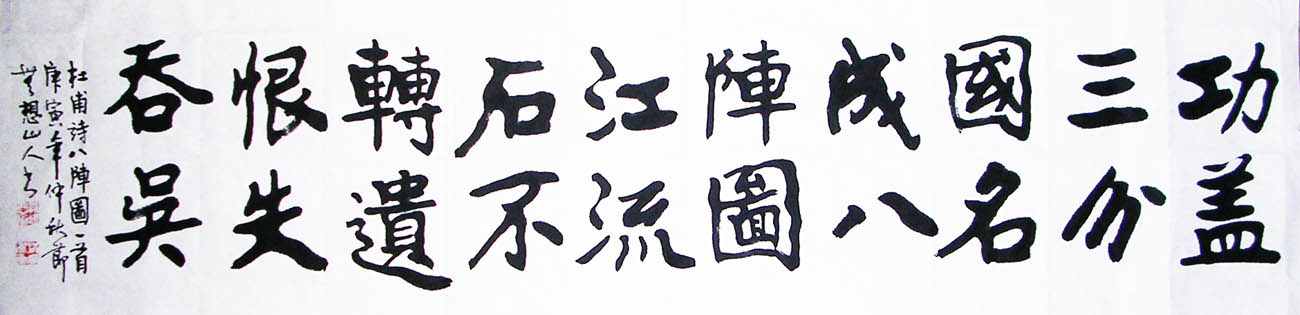 功盖
三分
國名
成八
陣圖
江流
石不
轉遺
恨失
吞吳
杜甫詩八陣圖一首
庚寅年仲秋節
想山人书